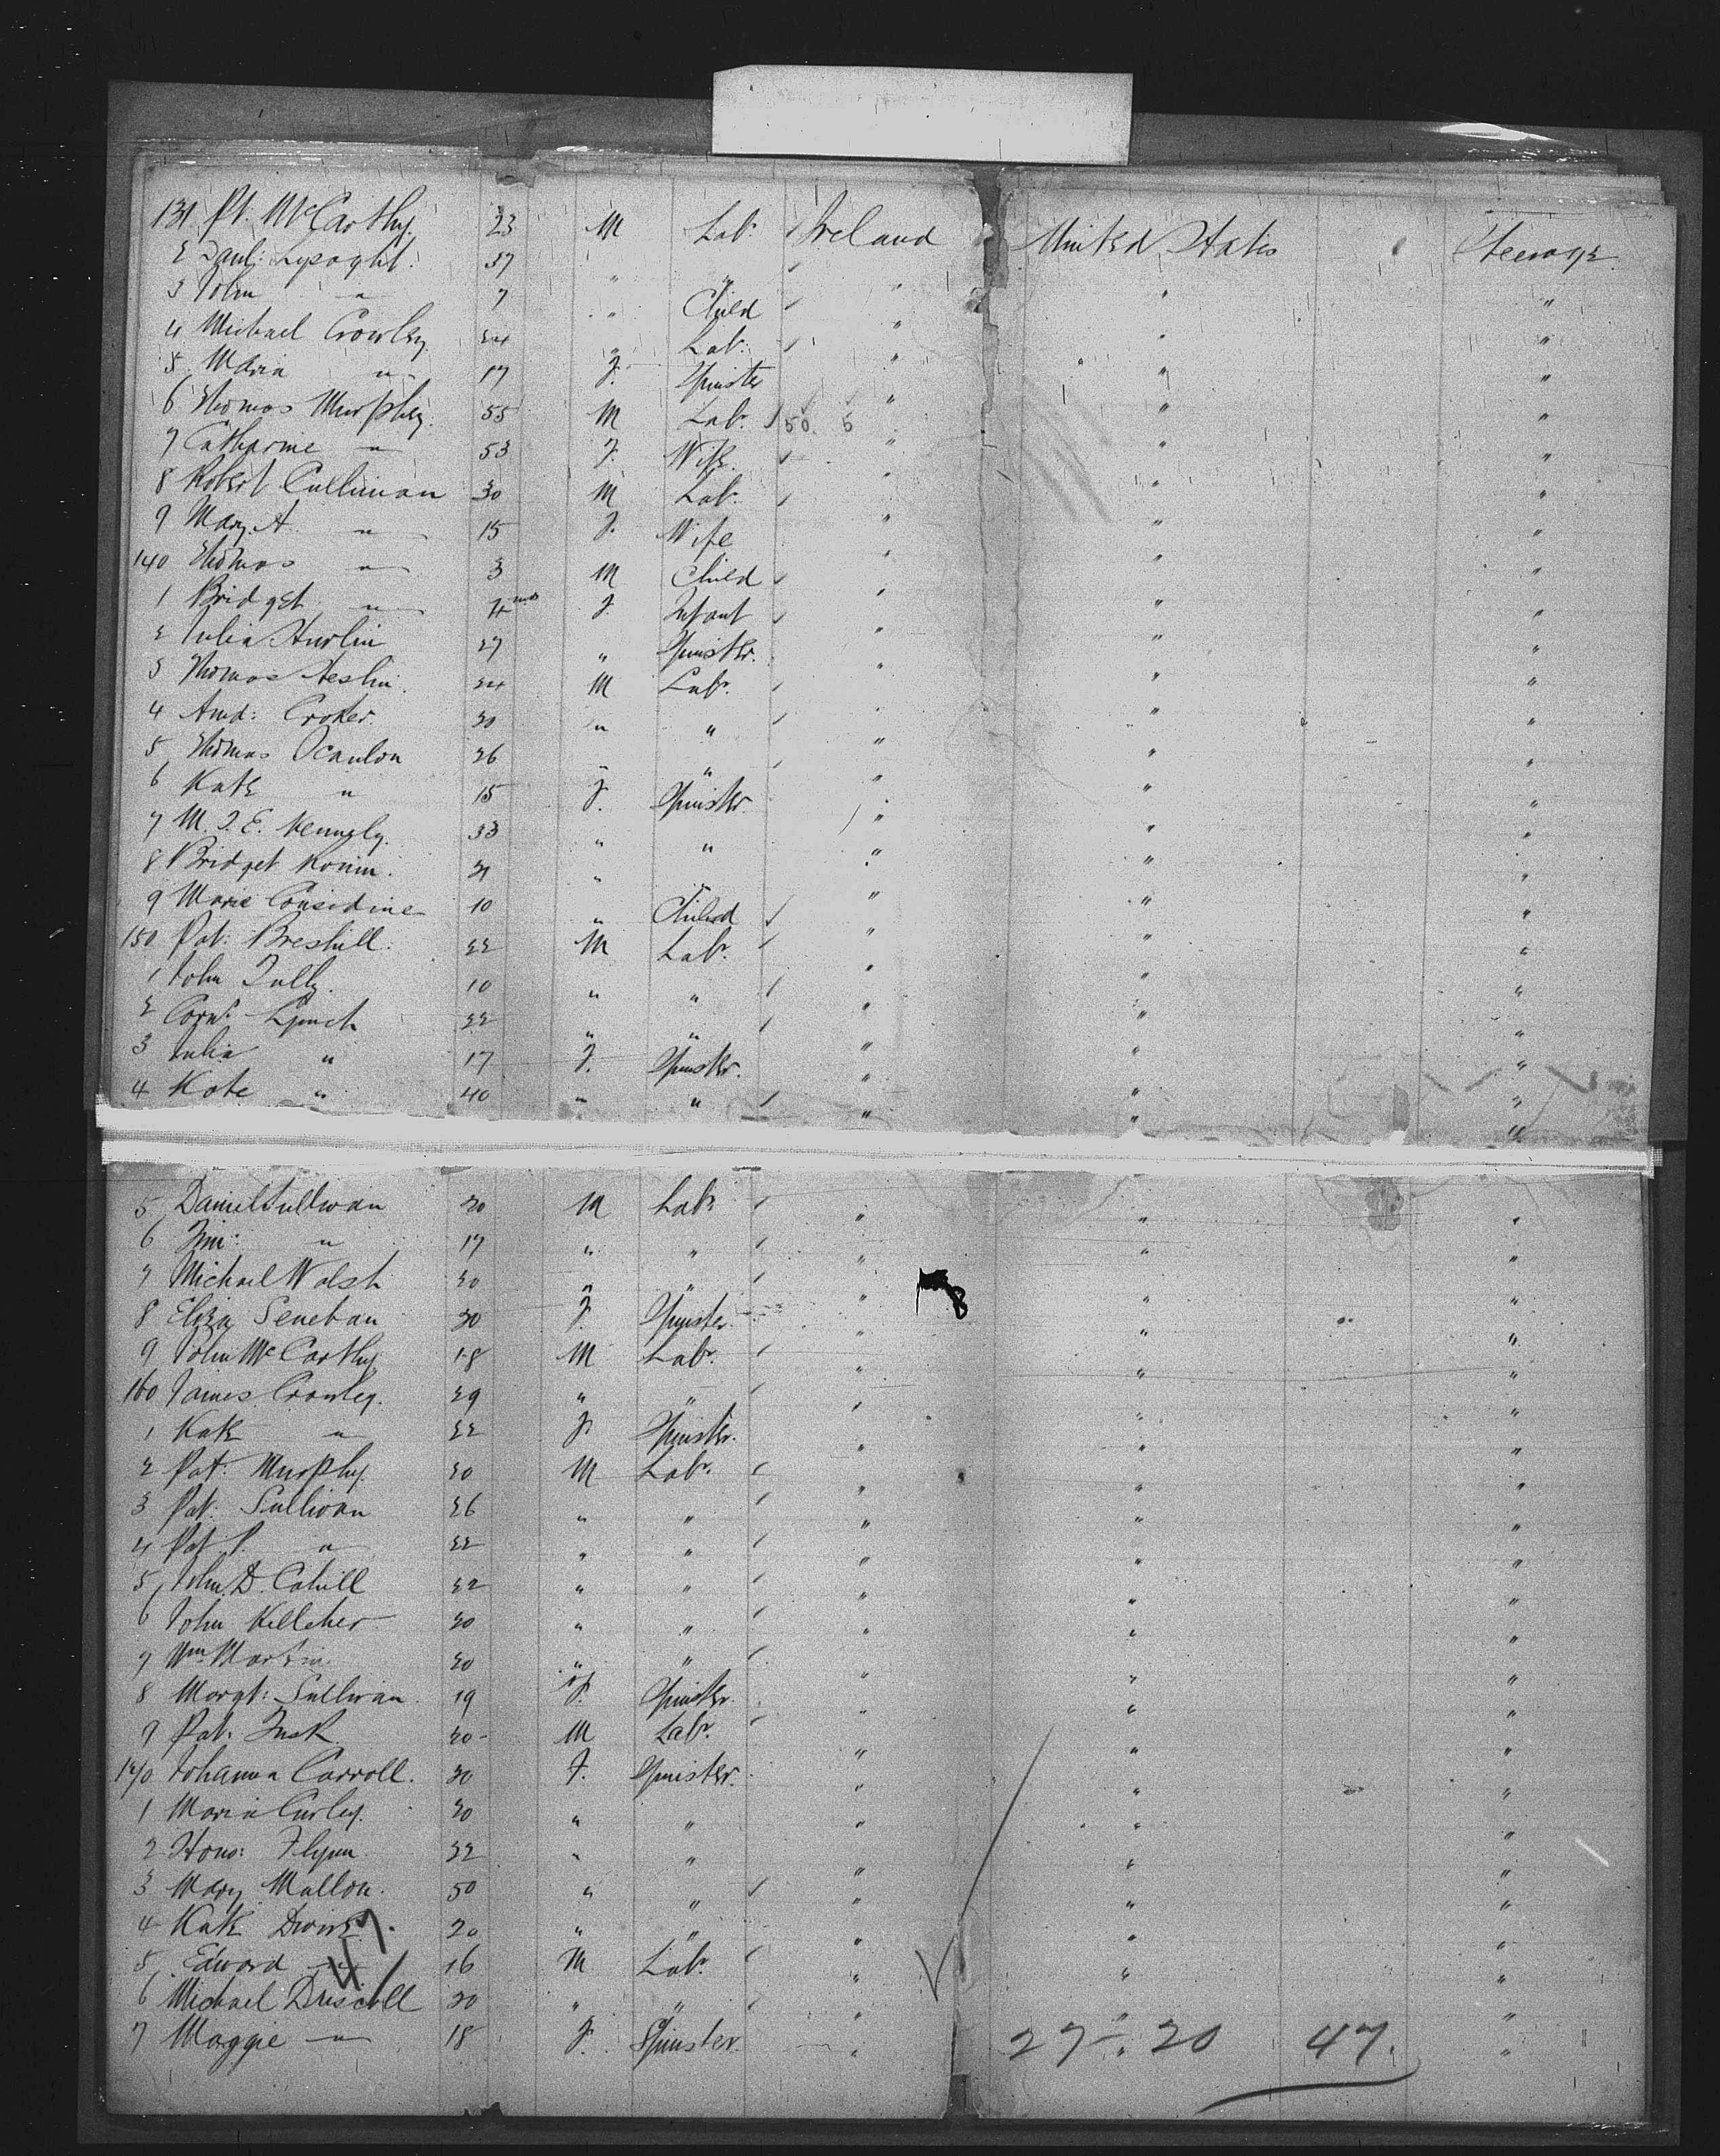 131 Pt. McCarthy. 23 M Lab. Ireland United States Steerage
2 Danl: Lysaght. 37 " " " " "
3 John " 7 " Child " " "
4 Michael Crowley 24 " Lab. " " "
5 Maria " 17 F. Spinster " " "
6 Thomas Murphy. 55 M Lab. 50. 5 " " "
7 Catharine " 53 F. Wife. " " "
8 Robert Cullinan 30 M Lab. " " "
9 Mary A " 15 F. Wife " " "
140 Thomas " 3 M Child " " "
1 Bridget " F Infant " " "
2 Julia 27 " Spinster. " " "
3 Thomas 24 M Lab. " " "
4 Croker. 30 " " " " "
5 Thomas Scanlon 26 " " " " "
6 Kate " 15 F. Spinster " " "
7 M. J. E. 33 " " " " "
8 Bridget " " " " "
9 Marie Considine 10 " Child " " "
150 Pat: 22 M Lab. " " "
1 John Tully. 10 " " " " "
2 Corn: Lynch 22 " " " " "
3 Julia " 17 F. Spinster. " " "
4 Kate " 40 " " " " "
5 Daniel Sullivan 20 M Lab " " "
6 " 17 " " " " "
7 Michael Walsh 20 " " " " "
8 Eliza 30 F. Spinster " " "
9 John McCarthy 18 M Lab. " " "
160 James Crowley. 29 " " " " "
1 Kate " 22 F. Spinster. " " "
2 Pat: Murphy. 20 M Lab. " " "
3 Pat. Sullivan 26 " " " " "
4 Pat P. " 22 " " " " "
5 John D. Cahill 22 " " " " "
6 John Kelleher 20 " " " " "
7 Wm Martin 20 " " " " "
8 Margt: Sullivan. 19 F. Spinster. " " "
9 Pat. 20 M Lab. " " "
170 Johanna Carroll. 30 F. Spinster. " " "
1 Maria Curley. 20 " " " " "
2 Hono: Flynn 22 " " " " "
3 Mary Mallon. 50 " " " " "
4 Kate 20 " " " " "
5 Edward " 16 M Lab. " " "
6 Michael Driscoll 20 " " " " "
7 Maggie " 18 F. Spinster. " " "
47.
27 - 20 47.